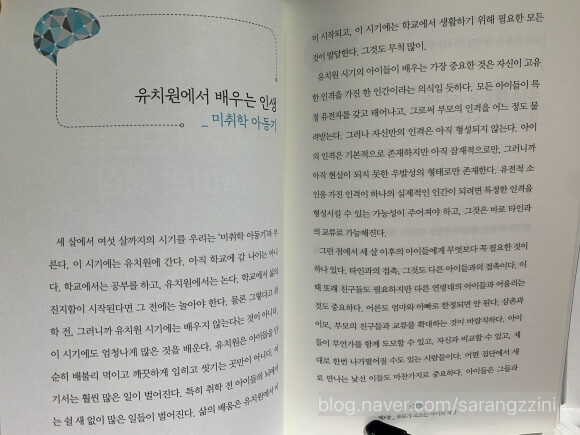 유치원에서 배우는 인생
_ 미취학 아동기
세 살에서 여섯 살까지의 시기를 우리는 '미취학 아동기'라 부
른다. 이 시기에는 유치원에 간다. 아직 학교에 갈 나이는 아니
다. 학교에서는 공부를 하고, 유치원에서는 논다. 학교에서 삶의
진지함이 시작된다면 그 전에는 놀아야 한다. 물론 그렇다고 취
학 전, 그러니까 유치원 시기에는 배우지 않는다는 것이 아니다.
이 시기에도 엄청나게 많은 것을 배운다. 유치원은 아이들을 단
순히 배불리 먹이고 깨끗하게 입히고 씻기는 곳만이 아니다. 여
기서는 훨씬 많은 일이 벌어진다. 특히 취학 전 아이들의 뇌에서
는 쉴 새 없이 많은 일들이 벌어진다. 삶의 배움은 유치원에서 이
미 시작되고, 이 시기에는 학교에서 생활하기 위해 필요한 모든
것이 발달한다. 그것도 무척 많이.
유치원 시기의 아이들이 배우는 가장 중요한 것은 자신이 고유
한 인격을 가진 한 인간이라는 의식일 듯하다. 모든 아이들이 특
정 유전자를 갖고 태어나고, 그로써 부모의 인격을 어느 정도 물
려받는다. 그러나 자신만의 인격은 아직 형성되지 않는다. 아이
의 인격은 기본적으로 존재하지만 아직 잠재적으로만, 그러니까
아직 현실이 되지 못한 우발성의 형태로만 존재한다. 유전적 소
인을 가진 인격이 하나의 실제적인 인간이 되려면 특정한 인격을
형성시킬 수 있는 가능성이 주어져야 하고, 그것은 바로 타인과
의 교류로 가능해진다.
그런 점에서 세 살 이후의 아이들에게 무엇보다 꼭 필요한 것이
하나 있다. 타인과의 접촉, 그것도 다른 아이들과의 접촉이다. 이
때 또래 친구들도 필요하지만 다른 연령대의 아이들과 어울리는
것도 중요하다. 어른도 엄마와 아빠로 한정되면 안 된다. 삼촌과
이모, 부모의 친구들과 교류를 확대하는 것이 바람직하다. 아이
들이 무언가를 함께 도모할 수 있고, 자신과 비교할 수 있고, 제
대로 한번 나가떨어질 수도 있는 사람들이다. 어떤 집단에서 새
로 만나는 낯선 이들도 마찬가지로 중요하다. 아이들은 그들과
blog.naver.com/sarangzzini